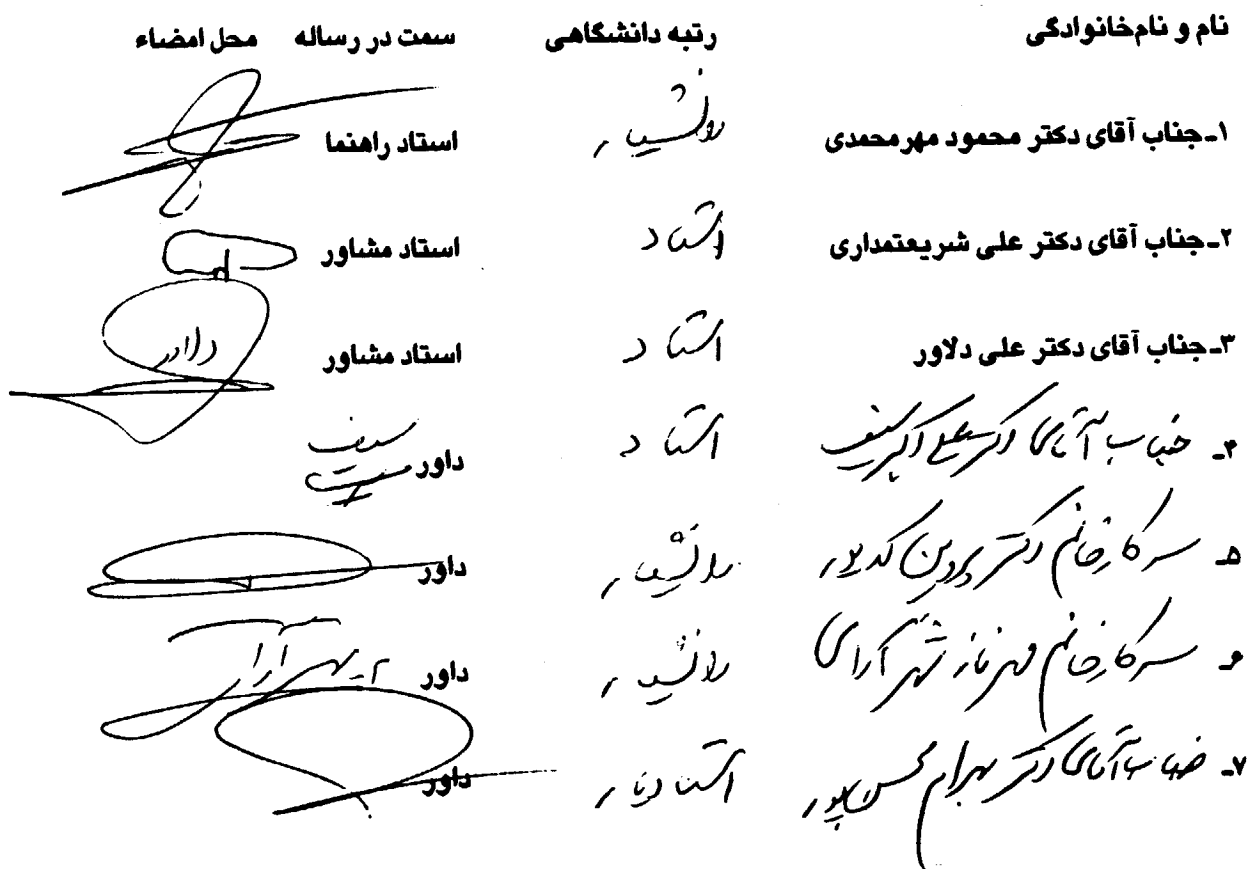 نام و نام‌خانوادگی رتبه دانشگاهی سمت در رساله محل امضاء
۱ـ جناب آقای دکتر محمود مهرمحمدی دانشیار استاد راهنما
۲ـ جناب آقای دکتر علی شریعتمداری استاد استاد مشاور
۳ـ جناب آقای دکتر علی دلاور استاد استاد مشاور دلاور
۴ـ جناب آقای دکتر علی اکبر سیف استاد داور سیف
۵ـ سرکار خانم دکتر پروین کدیور دانشیار داور
۶ـ سرکار خانم مهرناز شهرآرای دانشیار داور
۷ـ جناب آقای دکتر بهرام محسن پور استادیار داور